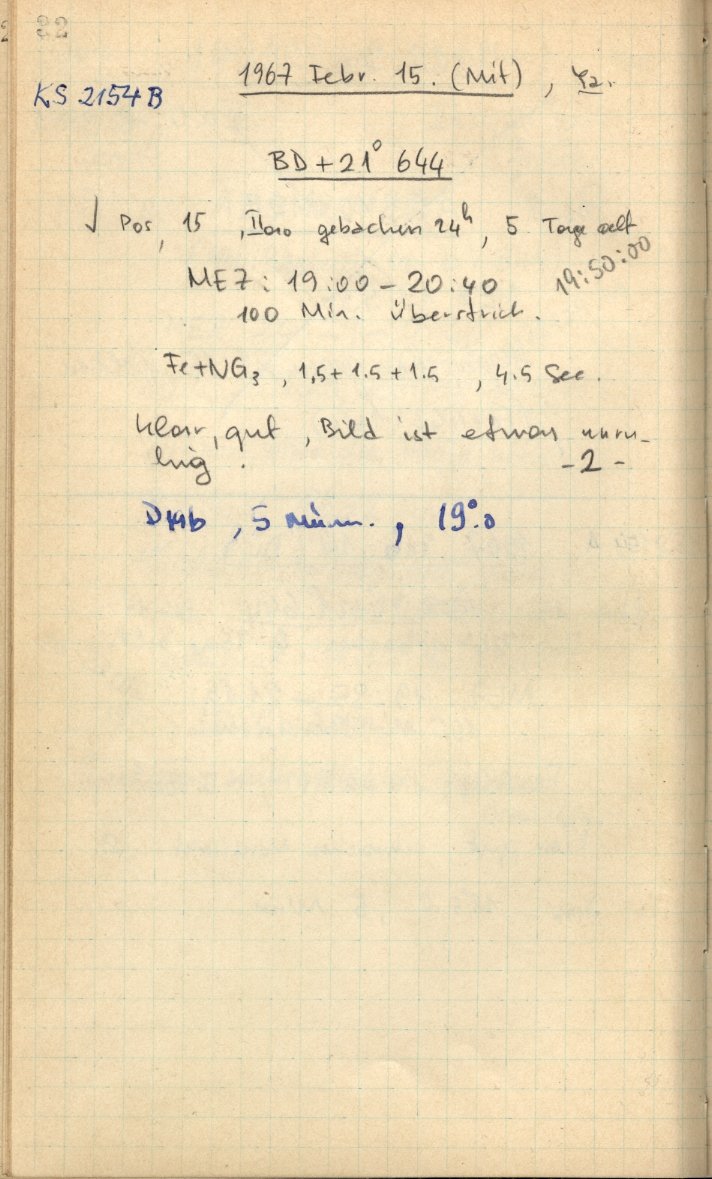 KS 2154 B
1967 Febr. 15. (Mit),
BD + 21° 644
Pos, 15, IIaO gebacken 24h, 5 Tage alt
19:50:00
MEZ: 19:00 - 20:40
100 Min. Überstrich.
Fe+NG3, 1,5 + 1.5 + 1.5, 4.5 Sec.
klar, gut, Bild ist etwas unru-
hig. - 2 -
5 min., 19°.0